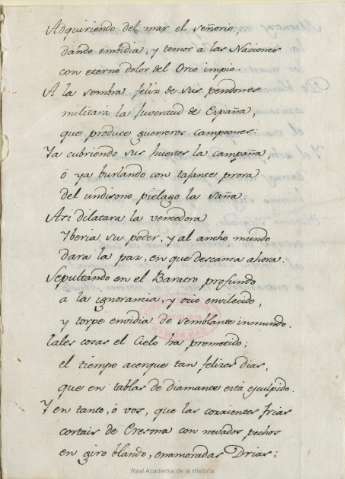 Adquiriendo del mar el señorio,
dando embidia, y temor à las Naciones
con eterno dolor del Orco impio.
A la sombra feliz de sus pendones
militarà la Juventud de España,
que produce guerreros campiones.
Ya cubriendo sus hueses la campaña
ò ya burlando con tajante prora
del undisono pielago la saña.
Asi dilatara la vencedora
Iberia su poder, y al ancho mundo
dara la paz, en que descansa ahora.
Sepultando en el Baratro profundo
à la ignorancia, y ocio envilecido,
y torpe embidia de semblante inmundo.
Tales cosas el Cielo ha prometido;
el tiempo acerque tan felizes dias,
que en tablas de diamante està esculpido
Y en tanto, ò vos, que las corrientes frias
cortais de Cresona con nevados pechos
en giro blando, enamoradas Drias:
Real Academia de la Historia